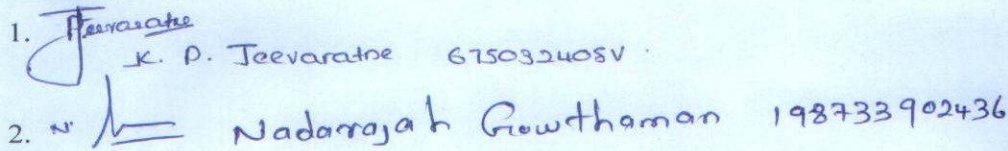 1. Jeevaratne
K. D. Jeevaratne 675032405V.
2. N. Nadarajah Gowthaman 198733902436